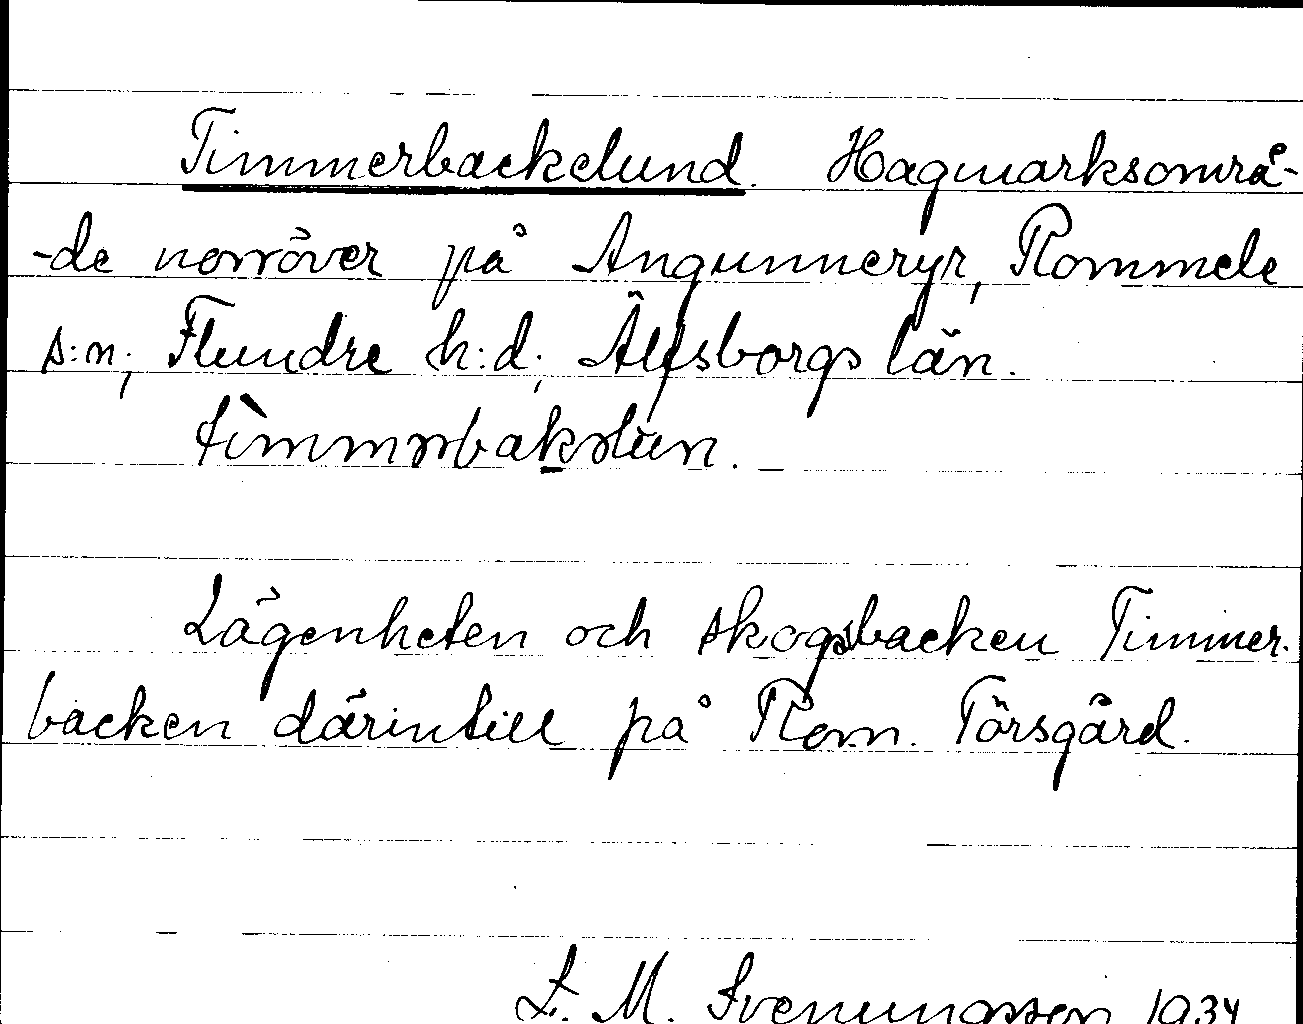 Timmerbackelund. Hagmarksområ-
-de norröver på Angunneryr, Rommele
s:n; Flundre h:d; Älfsborgs län.
Lägenheten och skogsbacken Timmer-
backen därintill på Rom. Törsgård.
M. Svenungsson 1934